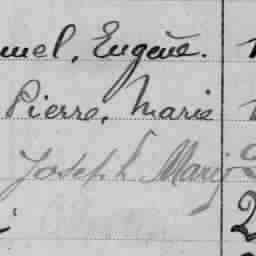 muel, Eugène.
Pierre, Marie
Joseph Mari
2